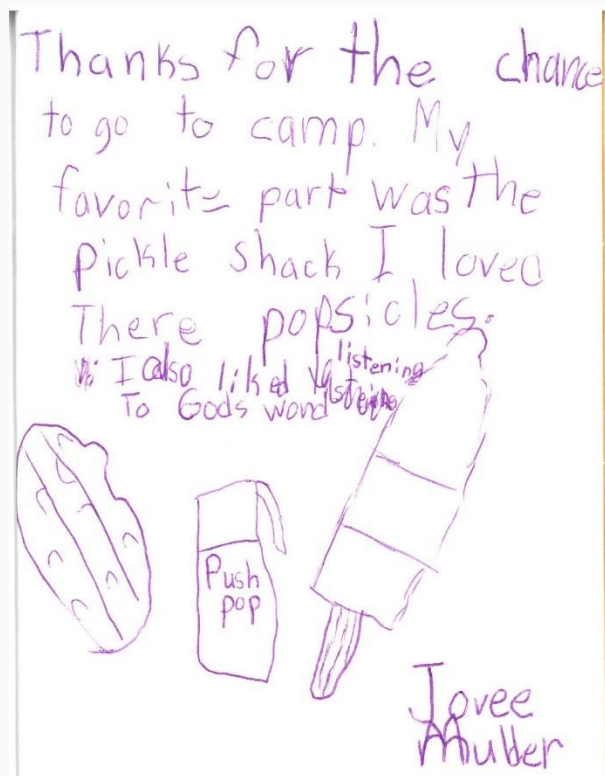 Thanks for the chance
to go to camp. My
favorite part was the
Pickle shack I loved
There popsicles.
I also liked listening
To Gods word
Push
pop
Jovee
Muller